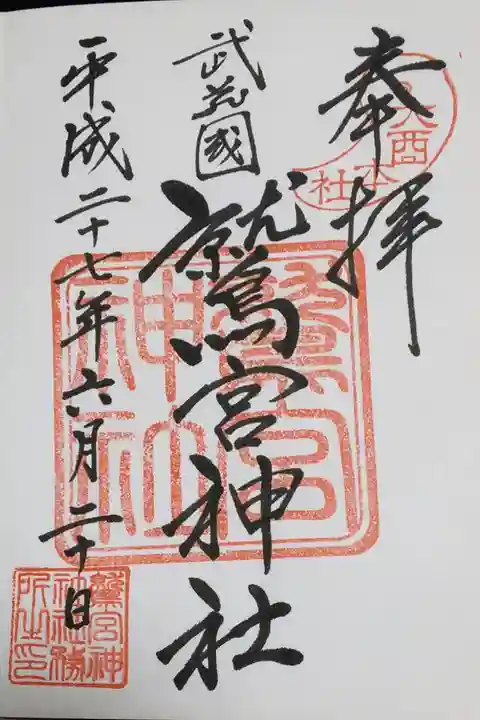 奉拝
武蔵國
鷲宮神社
平成二十七年六月二十日
鷲宮神社
鷲宮神
社社務
所之印